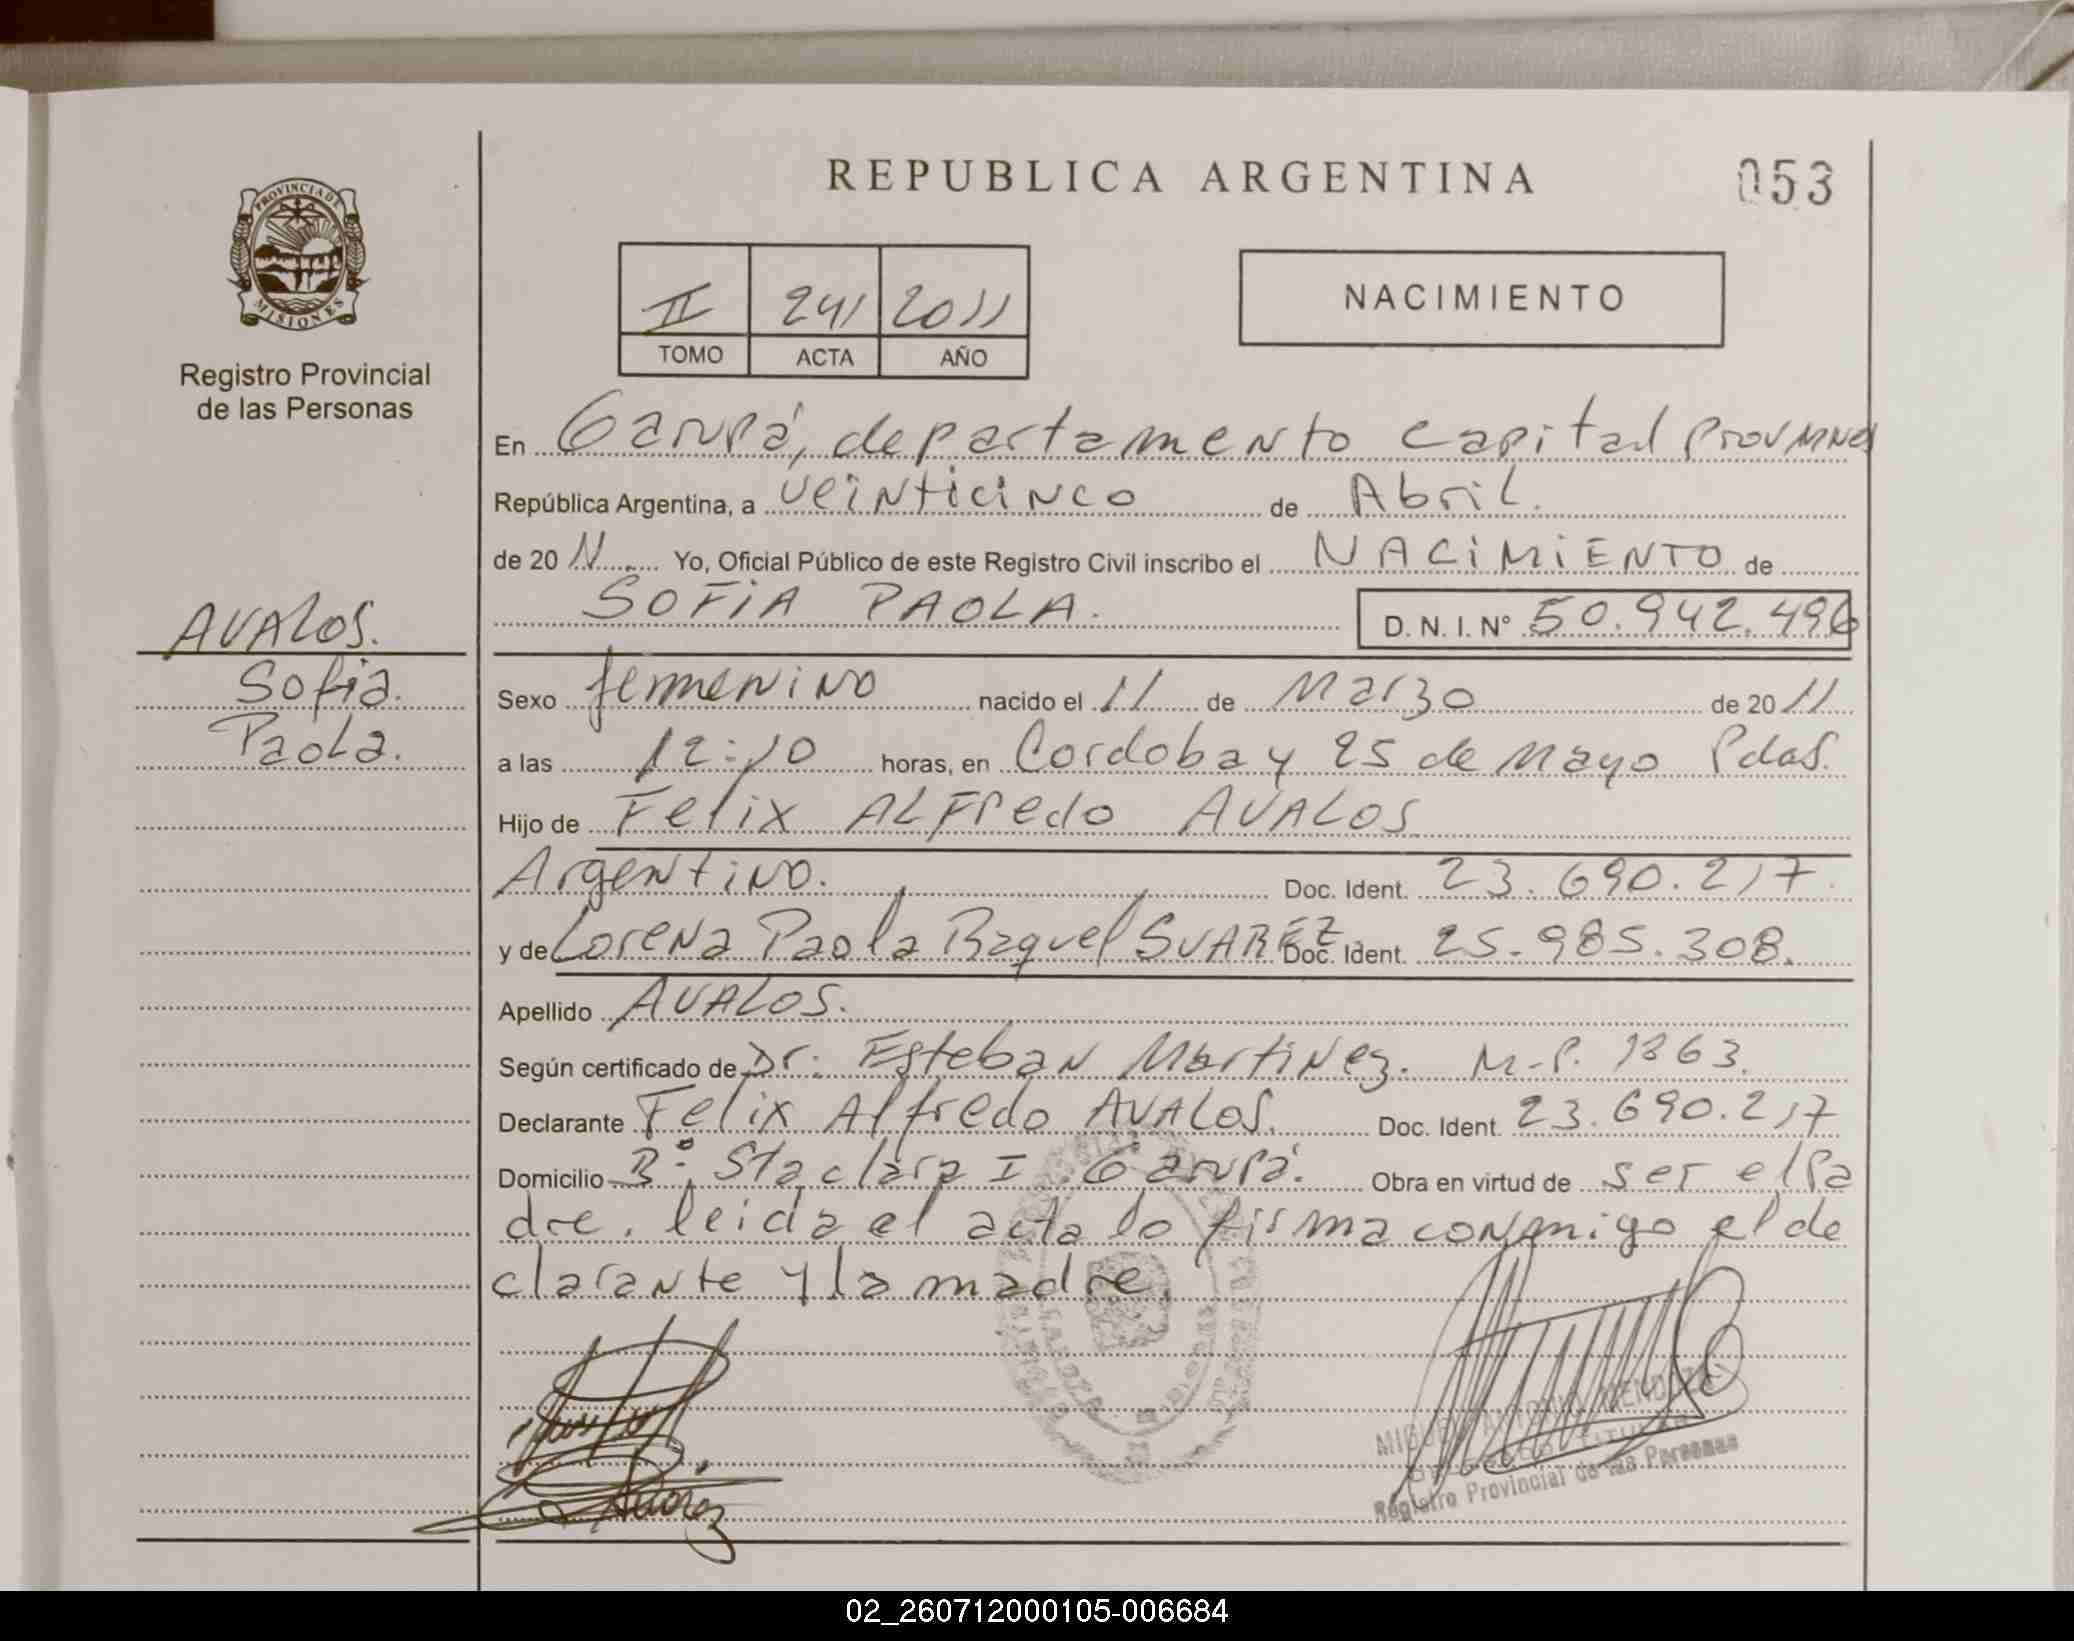 REPUBLICA ARGENTINA
053
PROVINCIA DE
MISIONES
Registro Provincial
de las Personas
II 241 2011
TOMO ACTA AÑO
NACIMIENTO
En Garupá, departamento Capital Prov Mnes
República Argentina, a veinticinco de Abril.
de 20 11 Yo, Oficial Público de este Registro Civil inscribo el NACIMIENTO de
SOFIA PAOLA.
D. N. I. N° 50.942.496
AVALOS.
Sofia.
Paola.
Sexo femenino nacido el 11 de Marzo de 20 11
a las 12:10 horas, en Cordoba y 25 de Mayo Pdas.
Hijo de Felix ALFredo AVALOS
Argentino. Doc. Ident. 23.690.217.
y de Lorena Paola Raquel SUAREZ Doc. Ident. 25.985.308.
Apellido AVALOS.
Según certificado de Dr: Esteban Martinez. M.P. 1863.
Declarante Felix Alfredo AVALOS. Doc. Ident. 23.690.217
Domicilio B° Sta clara I Garupá. Obra en virtud de ser el Pa
dre. leida el acta lo firma conmigo el de
clarante y la madre.
MIGUEL ANTONIO MENDOZA
DELEGADO TITULAR
Registro Provincial de las Personas
02_260712000105-006684